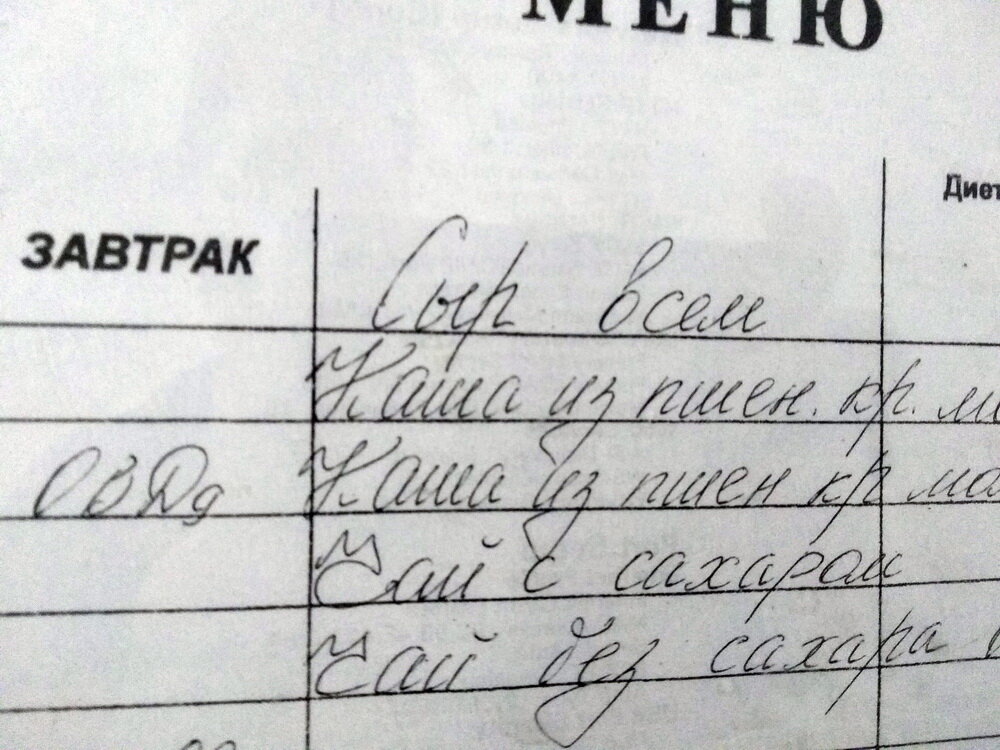 МЕНЮ
Диет
ЗАВТРАК Сыр всем
Каша из пшен. кр. мо
ОВДд Каша из пшен кр мол
Чай с сахаром
Чай без сахара